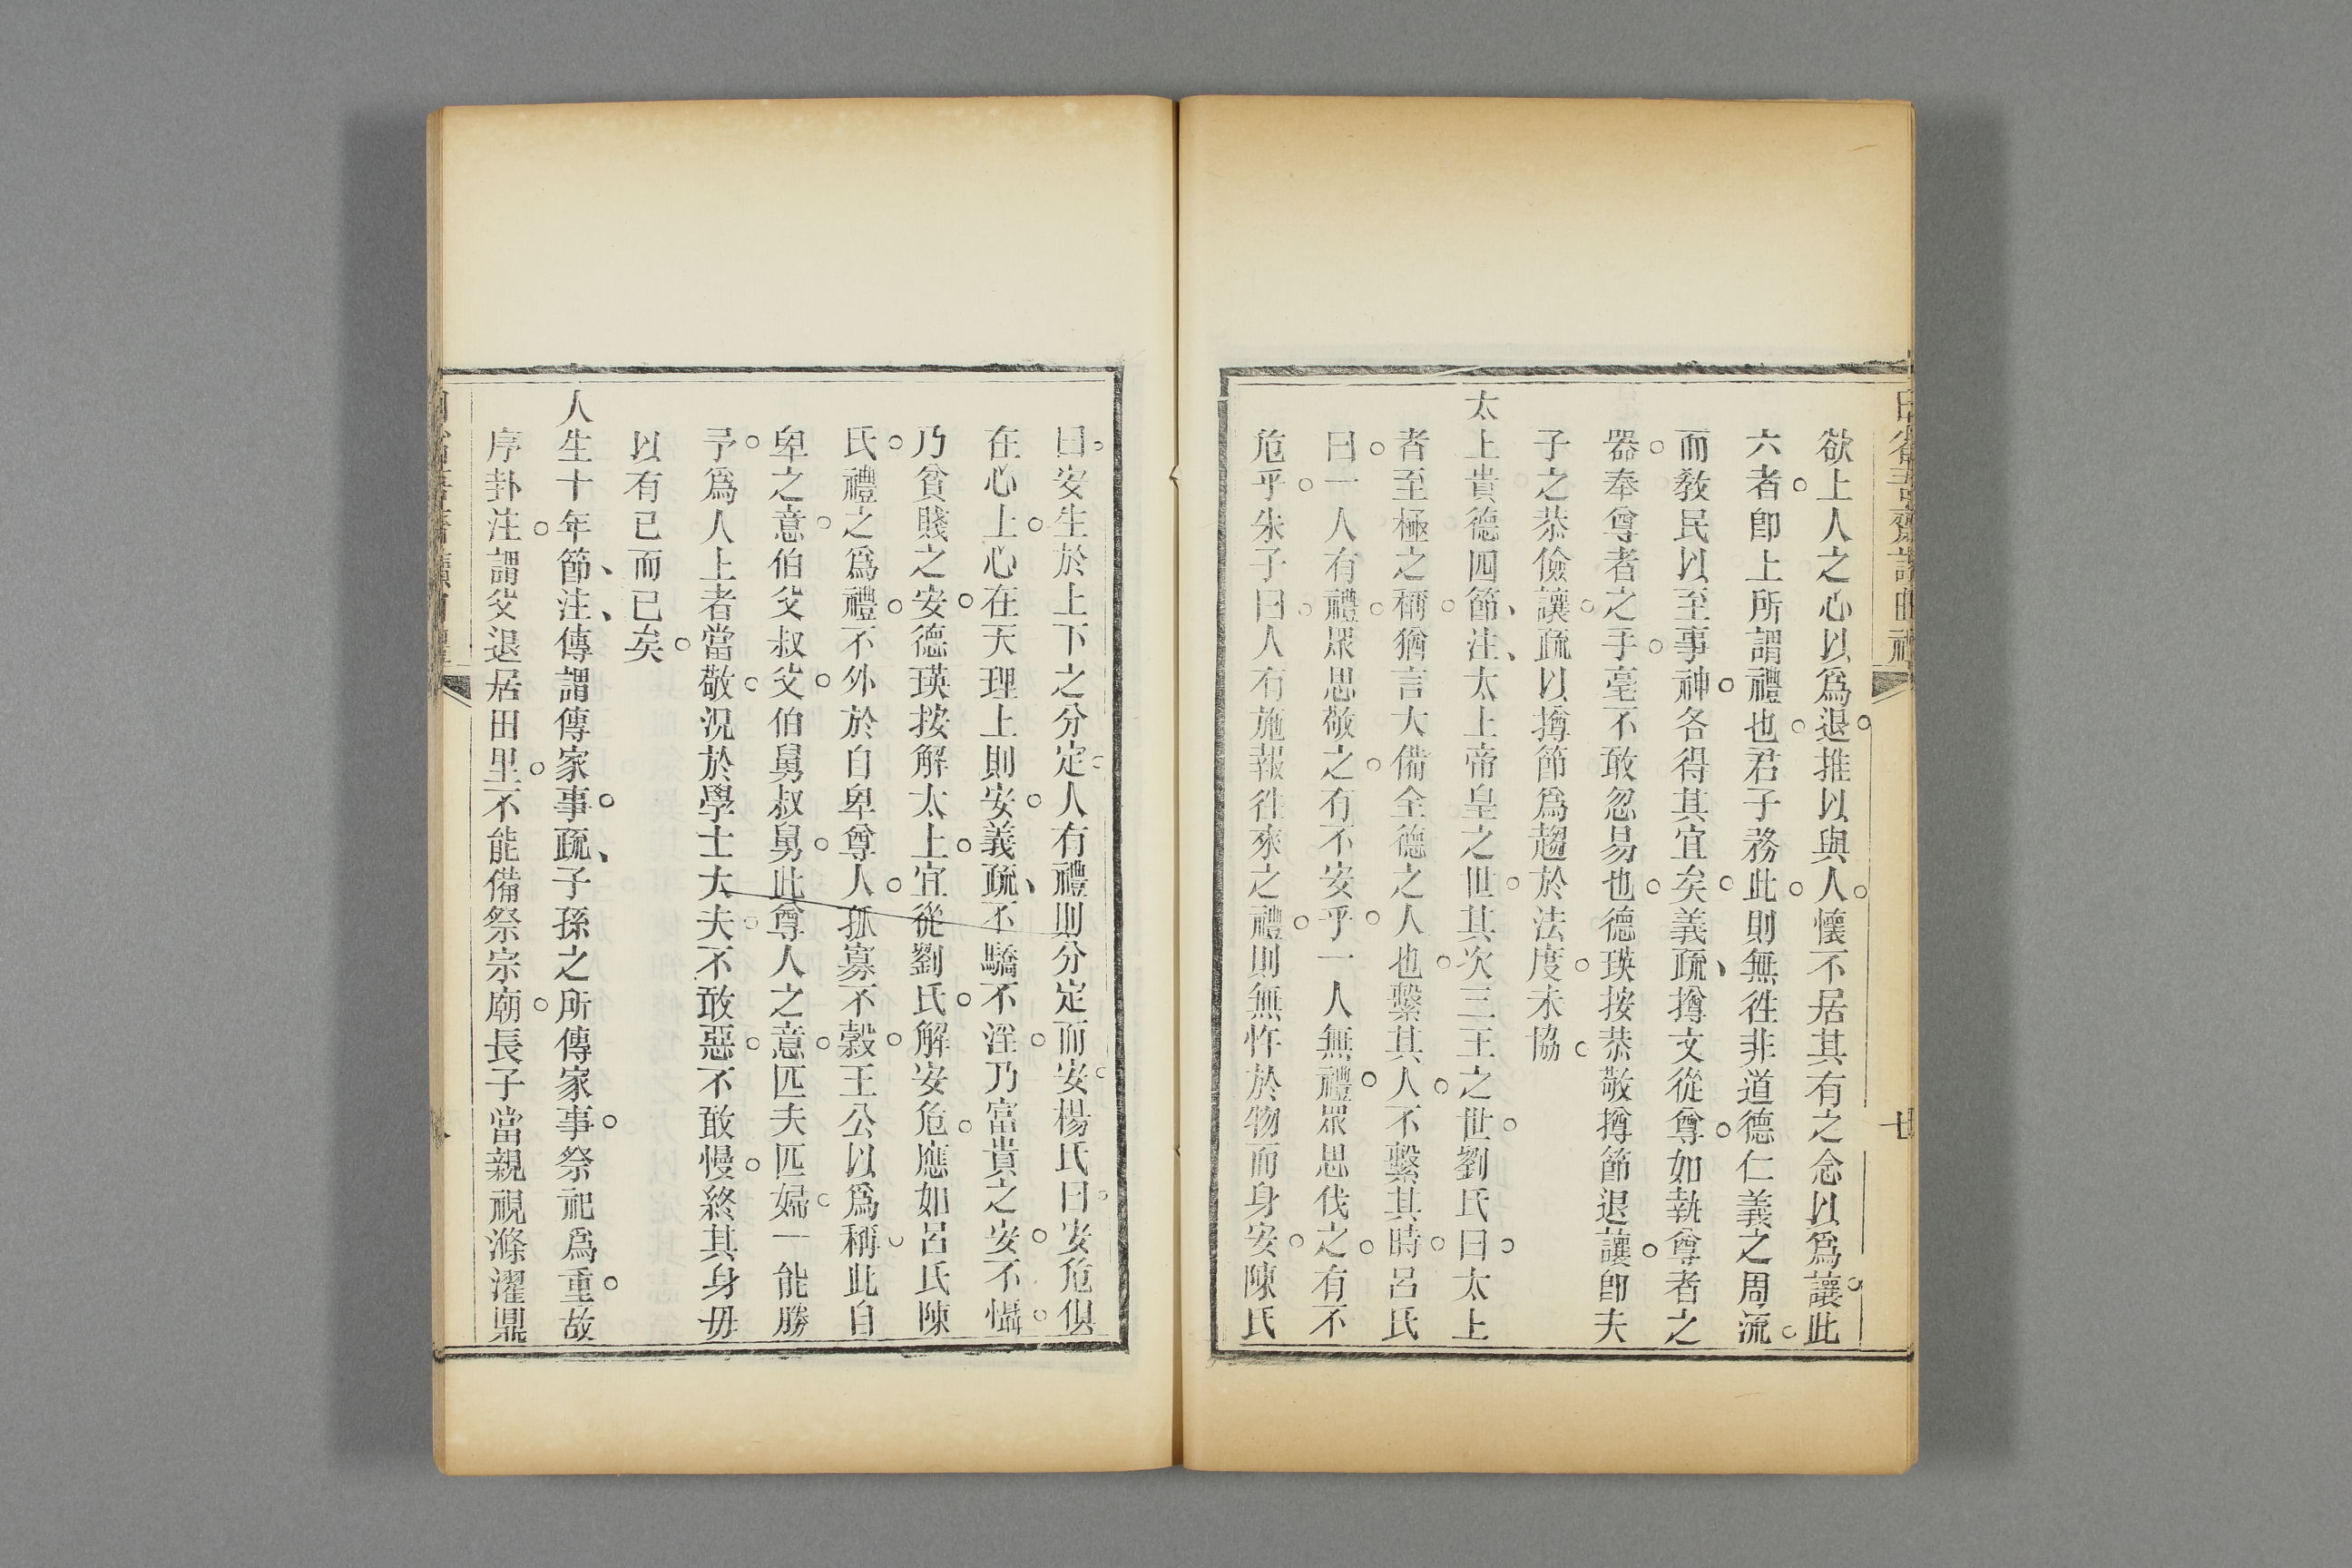 欲上人之心以爲退。推以與人。懷不居其有之念以爲讓。此
六者。卽上所謂禮也。君子務此。則無徃非道德仁義之周流。
而敎民以至事神。各得其宜矣。義疏、撙文從尊。如執尊者之
器。奉尊者之手。毫不敢忽易也。德瑛按恭敬撙節退讓。卽夫
子之恭儉讓。疏以撙節爲趨於法度。未協。
太上貴德四節、注、太上帝皇之世。其次三王之世。劉氏曰。太上
者至極之稱。猶言大備全德之人也。繫其人。不繫其時。呂氏
曰。一人有禮。眾思敬之。有不安乎。一人無禮。眾思伐之。有不
危乎。朱子曰。人有施報徃來之禮。則無忤於物而身安。陳氏
曰。安生於上下之分定。人有禮則分定而安。楊氏曰。安危俱
在心上。心在天理上則安。義疏、不驕不淫。乃富貴之安。不懾。
乃貧賤之安。德瑛按解太上。宜從劉氏。解安危。應如呂氏陳
氏。禮之爲禮。不外於自卑尊人。孤寡不穀。王公以爲稱。此自
卑之意。伯父叔父。伯舅叔舅。此尊人之意。匹夫匹婦。一能勝
予。爲人上者當敬。況於學士大夫。不敢惡。不敢慢。終其身毋
以有已而已矣。
人生十年節、注、傳謂傳家事。疏、子孫之所傳家事。祭祀爲重。故
序卦注。謂父退居田里。不能備祭宗廟。長子當親視滌濯鼎
七